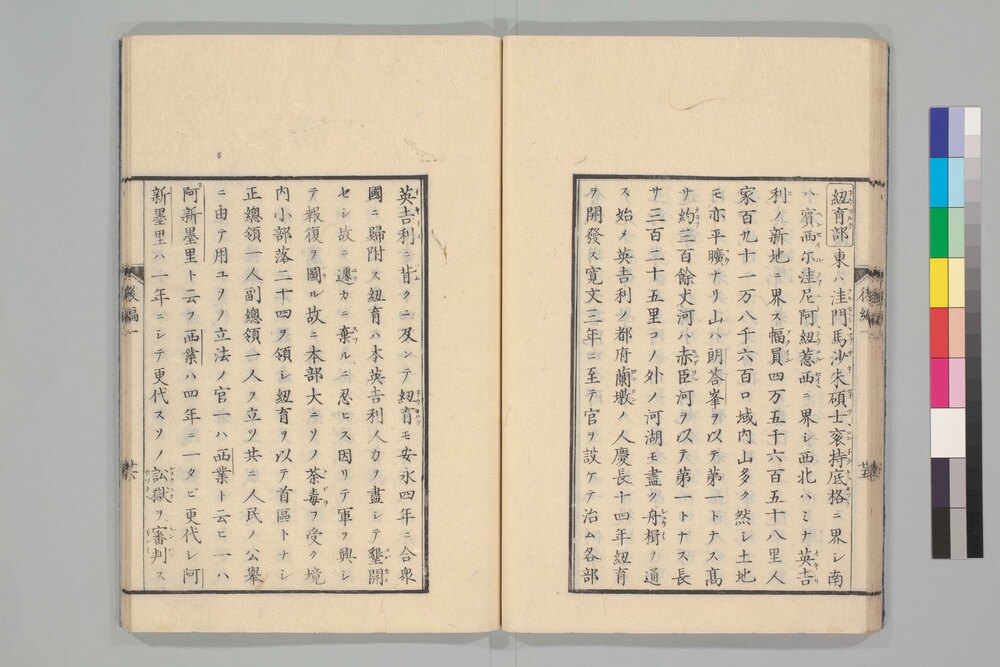 紐育部東ハ洼門馬沙朱碩士袞特底格ニ界シ南
ハ賓西尓洼尼阿紐惹西ニ界シ西北ハミナ英吉
利ノ新地ニ界ス幅員四万五千六百五十八里人
家百九十一万八千六百口域内山多ク然レ土地
モ亦平曠ナリ山ハ朗荅峯ヲ以テ第一トナス高
サ約三百餘丈河ハ赤臣河ヲ以テ第一トナス長
サ三百二十五里コノ外ノ河湖モ盡ク舟楫ヲ通
ス始メ英吉利ノ都府蘭墩ノ人慶長十四年紐育
ヲ開發ス寛文三年ニ至テ官ヲ設ケテ治ム各部
英吉利ニ背クニ及ンテ紐育モ安永四年ニ合衆
國ニ歸附ス紐育ハ本英吉利人力ヲ盡シテ墾開
セシ故ニ遽カニ棄ルニ忍ヒス因リテ軍ヲ興シ
テ報復ヲ圖ル故ニ本部大ニソノ荼毒ヲ受ク境
内小部落二十四ヲ領シ紐育ヲ以テ首區トナシ
正總領一人副總領一人ヲ立ツ共ニ人民ノ公舉
ニ由テ用ユソノ立法ノ官一ハ西業ト云ヒ一ハ
阿新墨里ト云フ西業ハ四年ニ一タビ更代シ阿
新墨里ハ一年ニシテ更代スソノ訟獄ヲ審判ス
後編